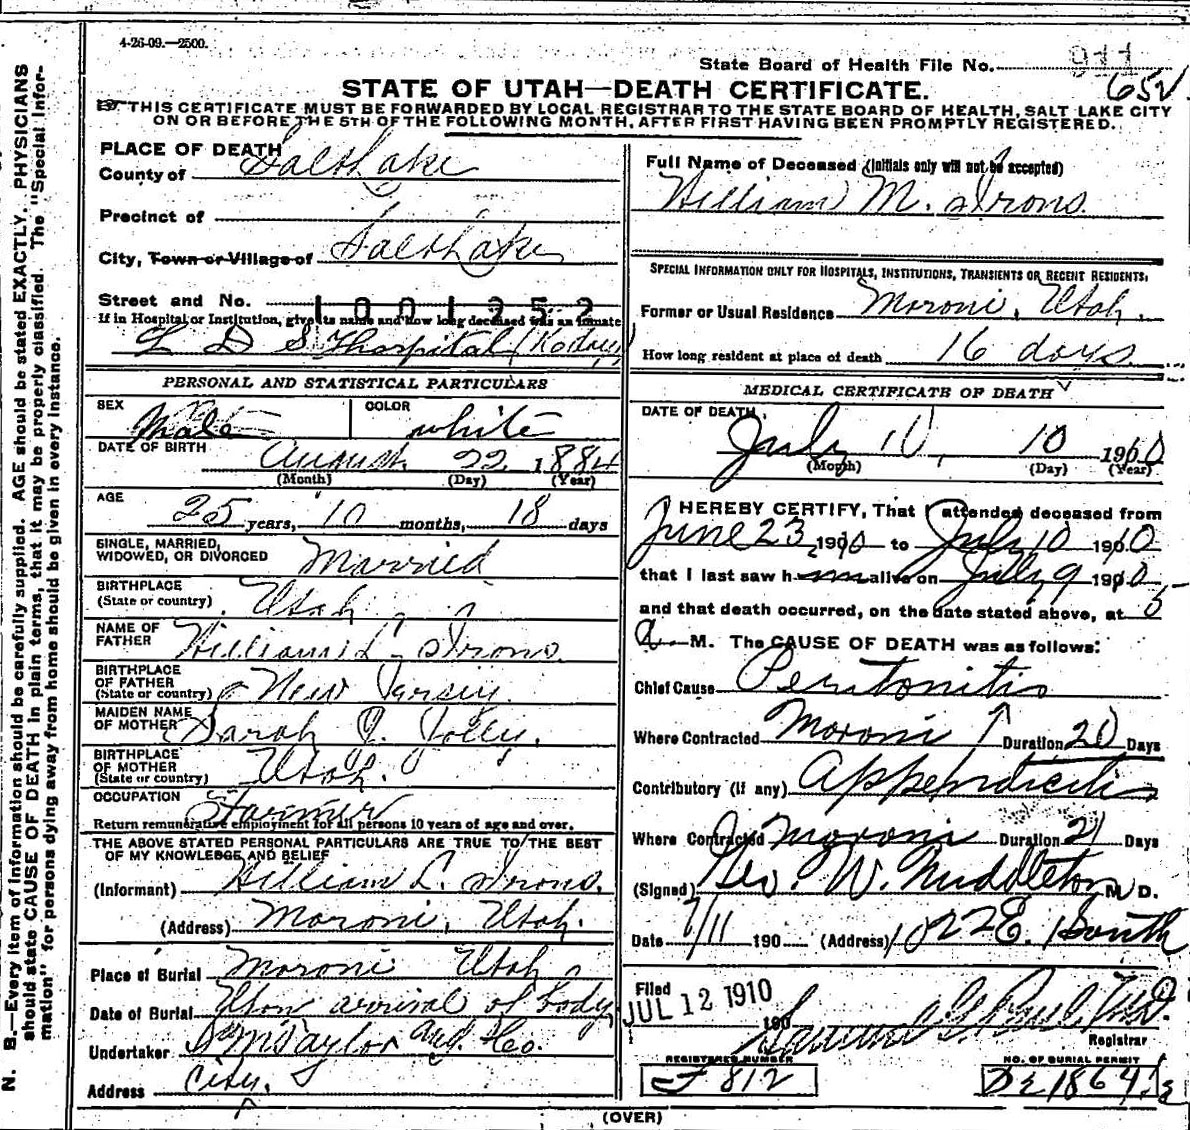 4-26-09.—2500.
State Board of Health File No. 911
652
STATE OF UTAH—DEATH CERTIFICATE.
THIS CERTIFICATE MUST BE FORWARDED BY LOCAL REGISTRAR TO THE STATE BOARD OF HEALTH, SALT LAKE CITY
ON OR BEFORE THE 5TH OF THE FOLLOWING MONTH, AFTER FIRST HAVING BEEN PROMPTLY REGISTERED.
N. B.—Every item of information should be carefully supplied. AGE should be stated EXACTLY. PHYSICIANS
should state CAUSE OF DEATH in plain terms, that it may be properly classified. The "Special Infor-
mation" for persons dying away from home should be given in every instance.
PLACE OF DEATH
County of Salt Lake
Precinct of
City, Town or Village of Salt Lake
Street and No. 1001252
If in Hospital or Institution, give its name and how long deceased was an inmate
L D S Hospital
PERSONAL AND STATISTICAL PARTICULARS
SEX Male COLOR white
DATE OF BIRTH August 22 1884
(Month) (Day) (Year)
AGE 25 years, 10 months, 18 days
SINGLE, MARRIED,
WIDOWED, OR DIVORCED Married
BIRTHPLACE
(State or country) Utah
NAME OF
FATHER William L. Irons.
BIRTHPLACE
OF FATHER
(State or country) New Jersey
MAIDEN NAME
OF MOTHER Sarah A. Jolley.
BIRTHPLACE
OF MOTHER
(State or country) Utah.
OCCUPATION Farmer
Return remunerative employment for all persons 10 years of age and over.
THE ABOVE STATED PERSONAL PARTICULARS ARE TRUE TO THE BEST
OF MY KNOWLEDGE AND BELIEF
(Informant) William L. Irons.
(Address) Moroni, Utah.
Place of Burial Moroni Utah
Date of Burial Upon arrival of body
Undertaker S M Taylor and Co.
Address City.
Full Name of Deceased (Initials only will not be accepted)
William M. Irons.
SPECIAL INFORMATION ONLY FOR HOSPITALS, INSTITUTIONS, TRANSIENTS OR RECENT RESIDENTS.
Former or Usual Residence Moroni, Utah.
How long resident at place of death 16 days.
MEDICAL CERTIFICATE OF DEATH
DATE OF DEATH
July 10, 10 1910
(Month) (Day) (Year)
I HEREBY CERTIFY, That I attended deceased from
June 23, 1910 to July 10 1910
that I last saw him alive on July 9 1910
and that death occurred, on the date stated above, at 5
A. M. The CAUSE OF DEATH was as follows:
Chief Cause Peritonitis
Where Contracted Moroni Duration 20 Days
Contributory (if any) Appendicitis
Where Contracted Moroni Duration 21 Days
(Signed) Geo. W. Middleton M D.
Date 7/11 190 (Address) 1022 E. 1 South
Filed
JUL 12 1910
190
Samuel G. Paul, M.D.
Registrar
REGISTERED NUMBER
F 812
NO. OF BURIAL PERMIT
(OVER)